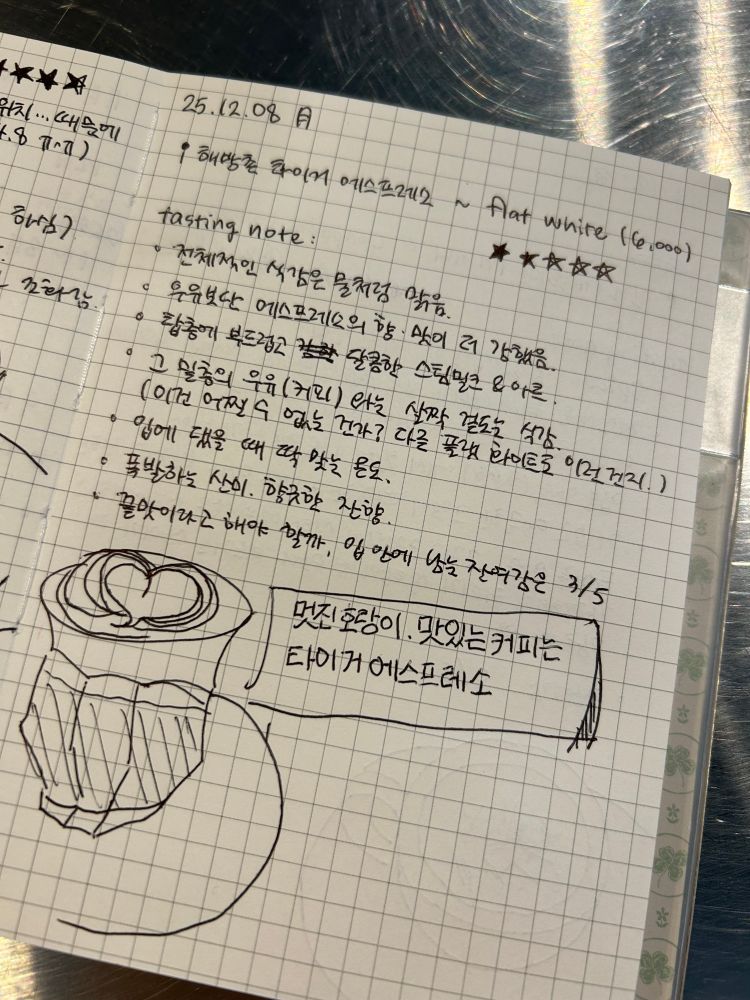 때문에
4.8 ㅠ-ㅠ)
하심?
조화감
25.12.08 月
해방촌 타이거 에스프레소 ~ flat white (6,000)
★★☆☆☆
tasting note:
• 전체적인 식감은 물처럼 맑음.
• 우유보단 에스프레소의 향·맛이 더 강했음.
• 탑층에 부드럽고 달콤한 스팀밀크 & 아트.
• 그 밑층의 우유(커피)와는 살짝 겉도는 식감.
(이건 어쩔 수 없는 건가? 다를 플랫 화이트도 이런건지.)
• 입에 댔을 때 딱 맞는 온도.
• 폭발하는 산미. 향긋한 잔향.
• 끝맛이라고 해야 할까, 입 안에 남는 잔여감은 3/5
멋진 호랑이. 맛있는 커피는
타이거 에스프레소